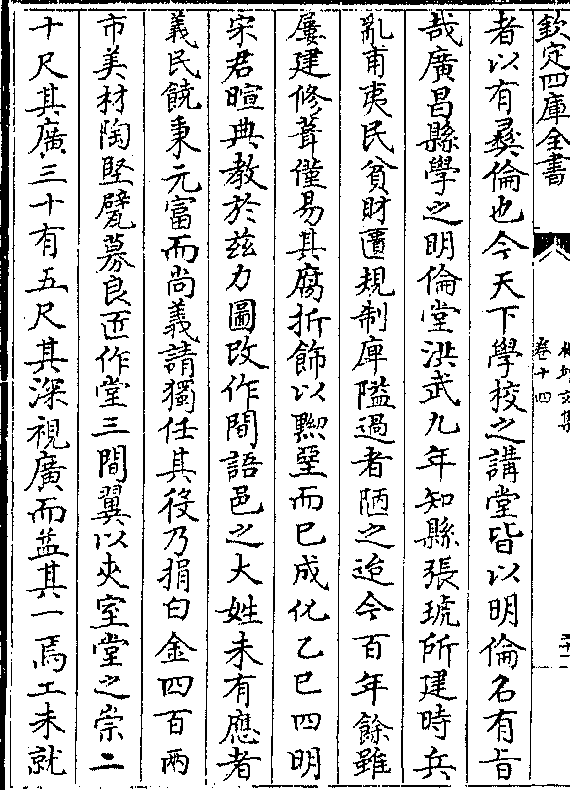 欽定四庫全書
卷十四
者以有彛倫也今天下學校之講堂皆以明倫名有旨
哉廣昌縣學之明倫堂洪武九年知縣張琥所建時兵
亂甫夷民貧財匱規制庳隘過者陋之迨今百年餘雖
屢建修葺僅易其腐折飾以黝堊而已成化乙巳四明
宋君暄典教於兹力圖改作間語邑之大姓未有應者
義民饒秉元富而尚義請獨任其役乃捐白金四百兩
市美材陶堅甓募良匠作堂三間翼以夾室堂之崇二
十尺其廣三十有五尺其深視廣而益其一焉工未就